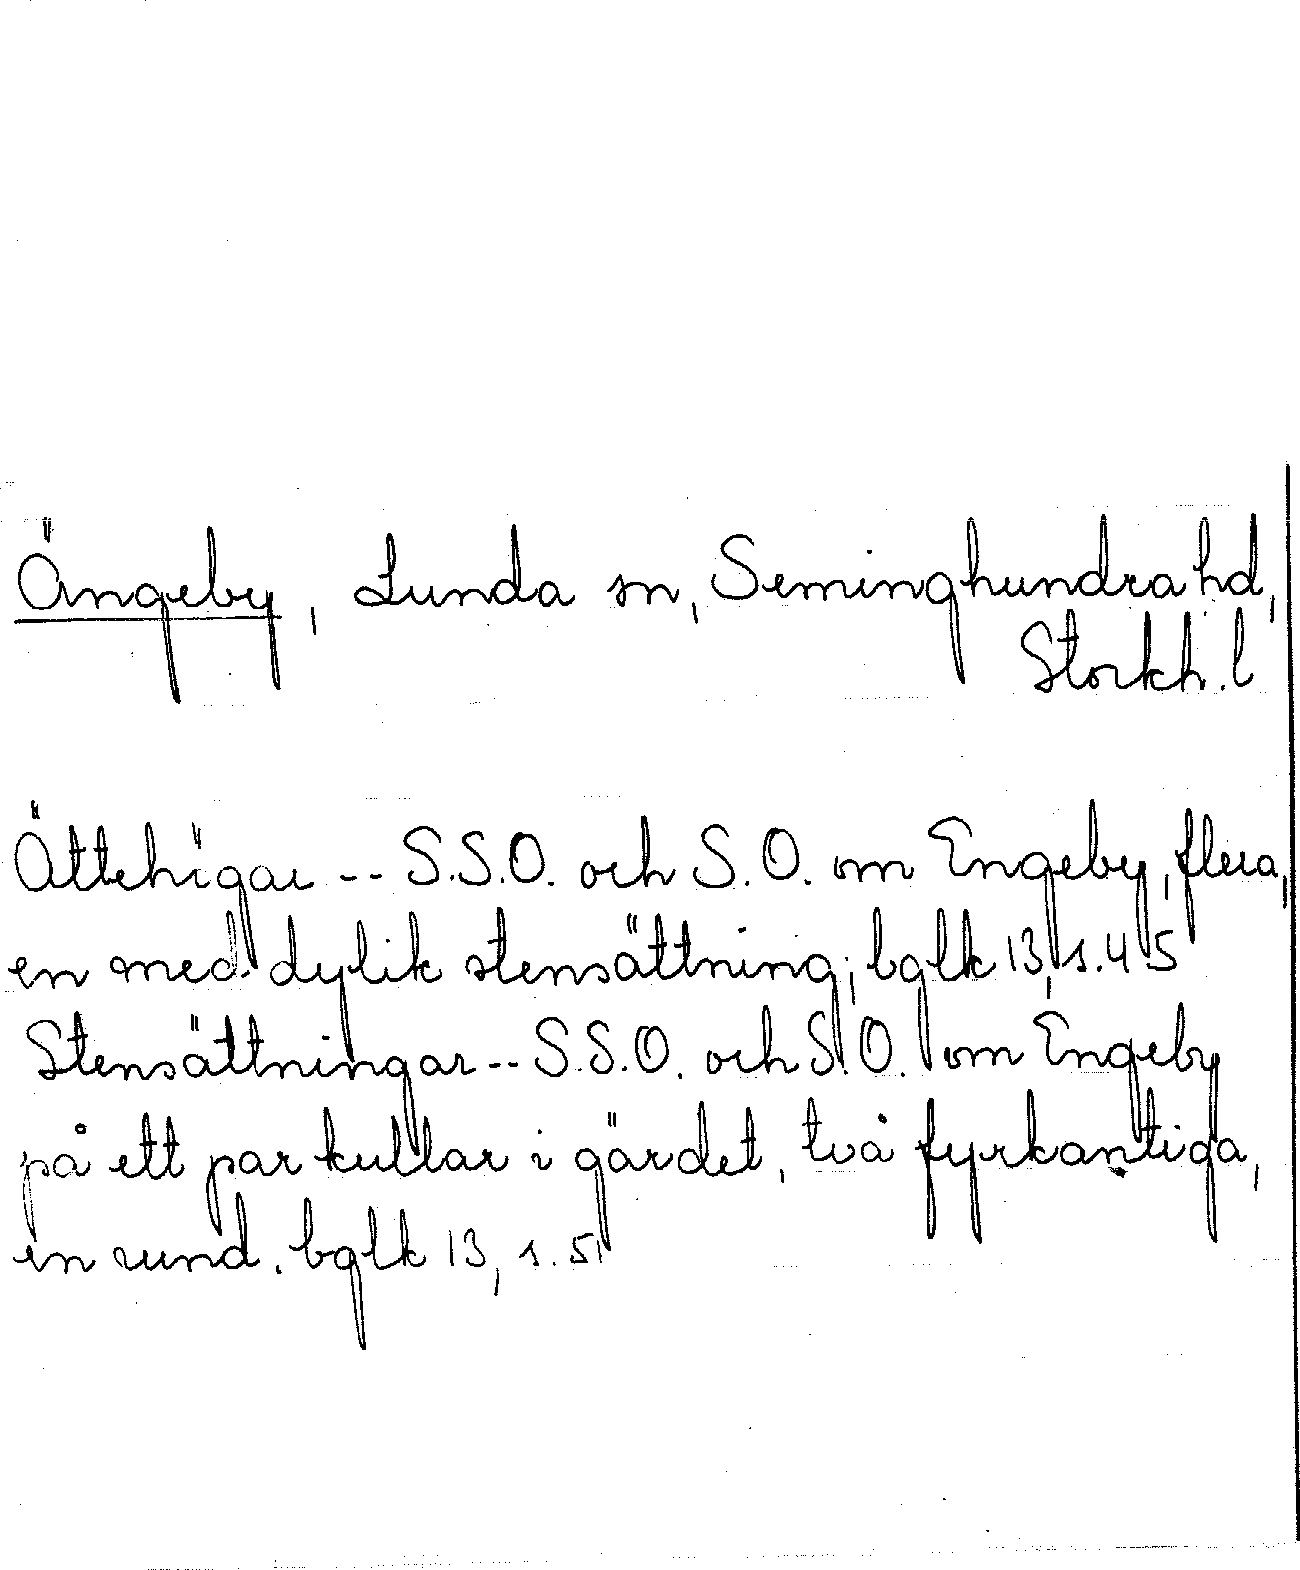 Ängeby, Lunda sn, Seminghundra hd,
Stockh. l
Ättehögar -- S.S.O. och S.O. om Engeby, flera,
en med dylik stensättning; bglk 13, s. 4 5
Stensättningar -- S.S.O. och S.O. om Engeby
på ett par kullar i gärdet, två fyrkantiga,
en rund. bglk 13, s. 5